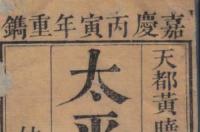 嘉慶丙寅年重鐫
天都黃曉
太平